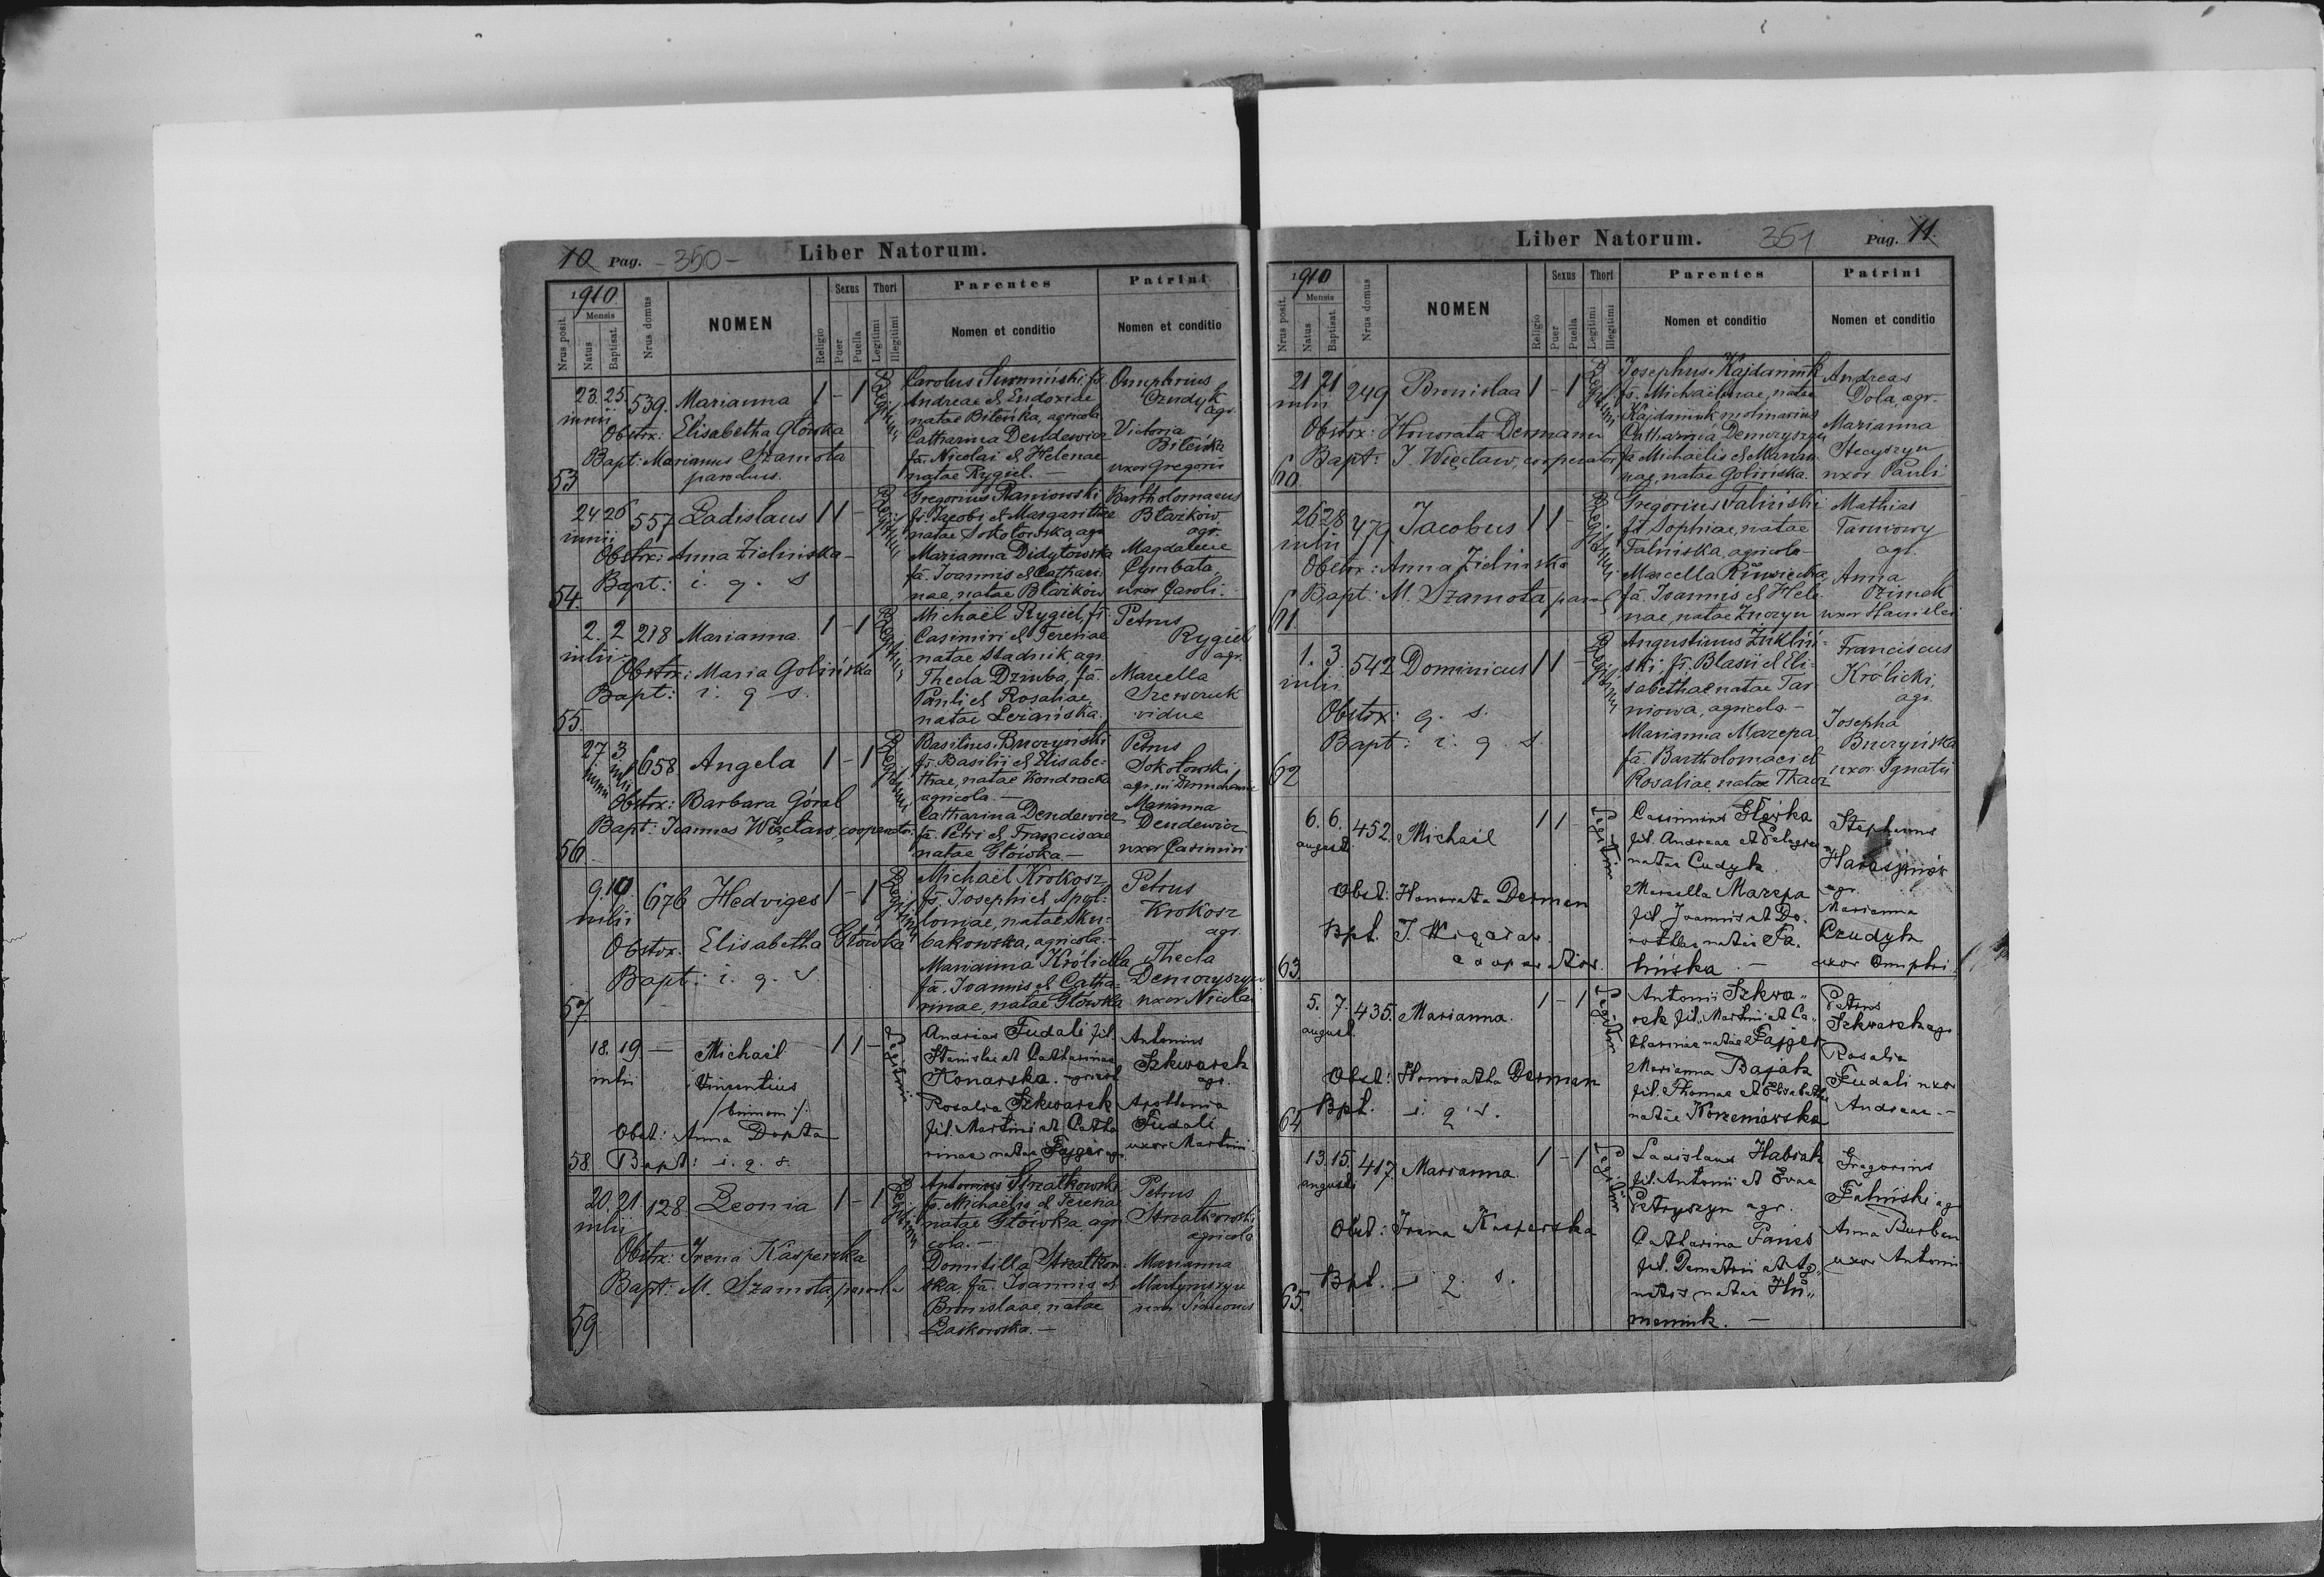 10 Pag. - 350 -
Liber Natorum.
1910.
Nrus posit.
Mensis
Natus
Baptisat.
Nrus domus
NOMEN
Religio
Sexus
Puer
Puella
Thori
Legitimi
Illegitimi
Parentes
Nomen et conditio
Patrini
Nomen et conditio
53
23. 25. 539. Marianna 1 - 1
iunii
Obstrx: Elisabetha Główka
Bapt: Marianus Szamota
parochus.
Carolus Surmiński, fs.
Andreae et Eudoxiae
natae Bileńka, agricola
Catharina Dendewicz
fa. Nicolai et Helenae
natae Rygiel. -
Onuphrius
Czudyk
agr.
Victoria
Bileńka
uxor Gregorii
54.
24. 26 557 Ladislaus 1 1 -
iunii
Obstrx: Anna Zielińska -
Bapt: i. q. s
Gregorius Raniowski
fs. Jacobi et Margarithae
natae Sokołowska, agr.
Marianna Didyłowska
fa. Joannis et Cathari-
nae, natae Błażków
Bartholomaeus
Błażków
agr.
Magdalena
Cymbała,
uxor Caroli.
55.
2. 2 218 Marianna. 1 - 1
iulii
Obstrx: Maria Golińska
Bapt: i. q. s.
Michaël Rygiel, fs.
Casimiri et Teresiae
natae Stadnik, agr.
Thecla Dziuba, fa.
Pauli et Rosaliae,
natae Leziańska.
Petrus
Rygiel
agr.
Marcella
Szewczuk
vidua
56
27. 3 658 Angela 1 - 1
iunii iulii
Obstrx: Barbara Góral
Bapt: Joannes Więcław, cooperator.
Basilius Buczyński
fs. Basilii et Elisabe-
thae, natae Kondracka
agricola. -
Catharina Dendewicz
fa. Petri et Franciscae
natae Główka -
Petrus
Sokołowski
agr. in
Marianna
Dendewicz
uxor Casimiri
57
9. 10 676 Hedviges 1 - 1
iulii
Obstrx. Elisabetha Główka
Bapt: i. q. s.
Michaël Krokosz,
fs. Josephi et Apol-
loniae, natae Sku-
bakowska, agricola. -
Marianna Królicka
fa. Joannis et Catha-
rinae, natae Główka
Petrus
Krokosz
agr.
Thecla
Demczyszyn
uxor Nicolai
58.
18. 19 - Michaël 1 1 -
iulii
Vincentius
/binom:/
Obst: Anna Dopta
Bapt: i. q. s.
Andreas Fudali fil.
Stanislai et Catharinae
Konarska. agricol
Rosalia Szkwarek
fil. Martini et Catha
rinae natae Fajger agr.
Antonius
Szkwarek
agr.
Apollonia
Fudali
uxor Martini
59
20. 21 128. Leonia 1 - 1
iulii
Obstrx: Irena Kasperska
Bapt: M. Szamota, parochus
Antonius Strzałkowski
fs. Michaëlis et Teresiae
natae Główka, agri
cola. -
Domitilla Strzałkow-
ska, fa. Joannis et
Bronislaae, natae
Laskowska. -
Petrus
Strzałkowski
agricola
Marianna
Martyniszyn
uxor Simeonis
Liber Natorum.
351
Pag. 11.
1910
Nrus posit.
Mensis
Natus
Baptisat.
Nrus domus
NOMEN
Religio
Sexus
Puer
Puella
Thori
Legitimi
Illegitimi
Parentes
Nomen et conditio
Patrini
Nomen et conditio
60.
21 21 249 Bronislaa 1 - 1
iulii
Obstrx: Honorata Dermann
Bapt: J. Więcław, cooperator
Josephus Kajdaniuk
fs. Michaëlinae, natae
Kajdaniuk molinarius
Catharina Demczyszyn
fa Michaëlis et Marian
nae, natae Golińska.
Andreas
Dola, agr.
Marianna
Stecyszyn
uxor Pauli
61
26 28 479 Jacobus 1 1 -
iulii
Obstrx: Anna Zielińska
Bapt: M. Szamota paroch
Gregorius Faliński
fs. Sophiae, natae
Falińska, agricola -
Marcella
fa. Joannis et Hele-
nae, natae Znoczyn
Mathias
Tarnowy
agr.
Anna
Ozimek
uxor Stanislai
62
1. 3. 542 Dominicus 1 1 -
iulii
Obstrx: q. s.
Bapt: i. q. s.
Augustinus Żukliń-
ski, fs. Blasii et Eli-
sabethae natae Tar-
nowa, agricola. -
Marianna Mazepa
fa. Bartholomaei et
Rosaliae, natae Tkacz
Franciscus
Królicki,
agr.
Josepha
Buczyńska
uxor Ignatii
63.
6. 6. 452. Michaël 1 1 -
august.
Obst: Honorata Derman
Bpt. J. Więcław
cooperator.
Casimirus Główka
fil. Andreae et Pelagiae
natae Cudyk
Marcella Mazepa
fil. Joannis et Do.
rotheae natae Fa.
lińska. -
Stephanus
Harasymów
agr.
Marianna
Czudyk
uxor Onuphri
64
5. 7. 435. Marianna. 1 - 1
august.
Obst: Honoratha Derman
Bpt. i. q. s.
Antonii Szkwa„
rek fil. Martini et Ca„
tharinae natae Fajger
Marianna Bajak
fil. Thomae et Elisabethae
natae Korzeniowska
Petrus
Szkwarek agr
Rosalia
Fudali uxor
Andreae. -
65.
13. 15. 417. Marianna. 1 - 1
augusti
Obst: Irena Kasperska
Bpt. - i. q. s.
Ladislaus Habiak
fil. Antonii et Evae
Petryszyn agr.
Catharina Panas
fil. Demetrii et Ag„
netis natae Hu„
meniuk. -
Gregorius
Faliński agr
Anna Burban
uxor Antonii